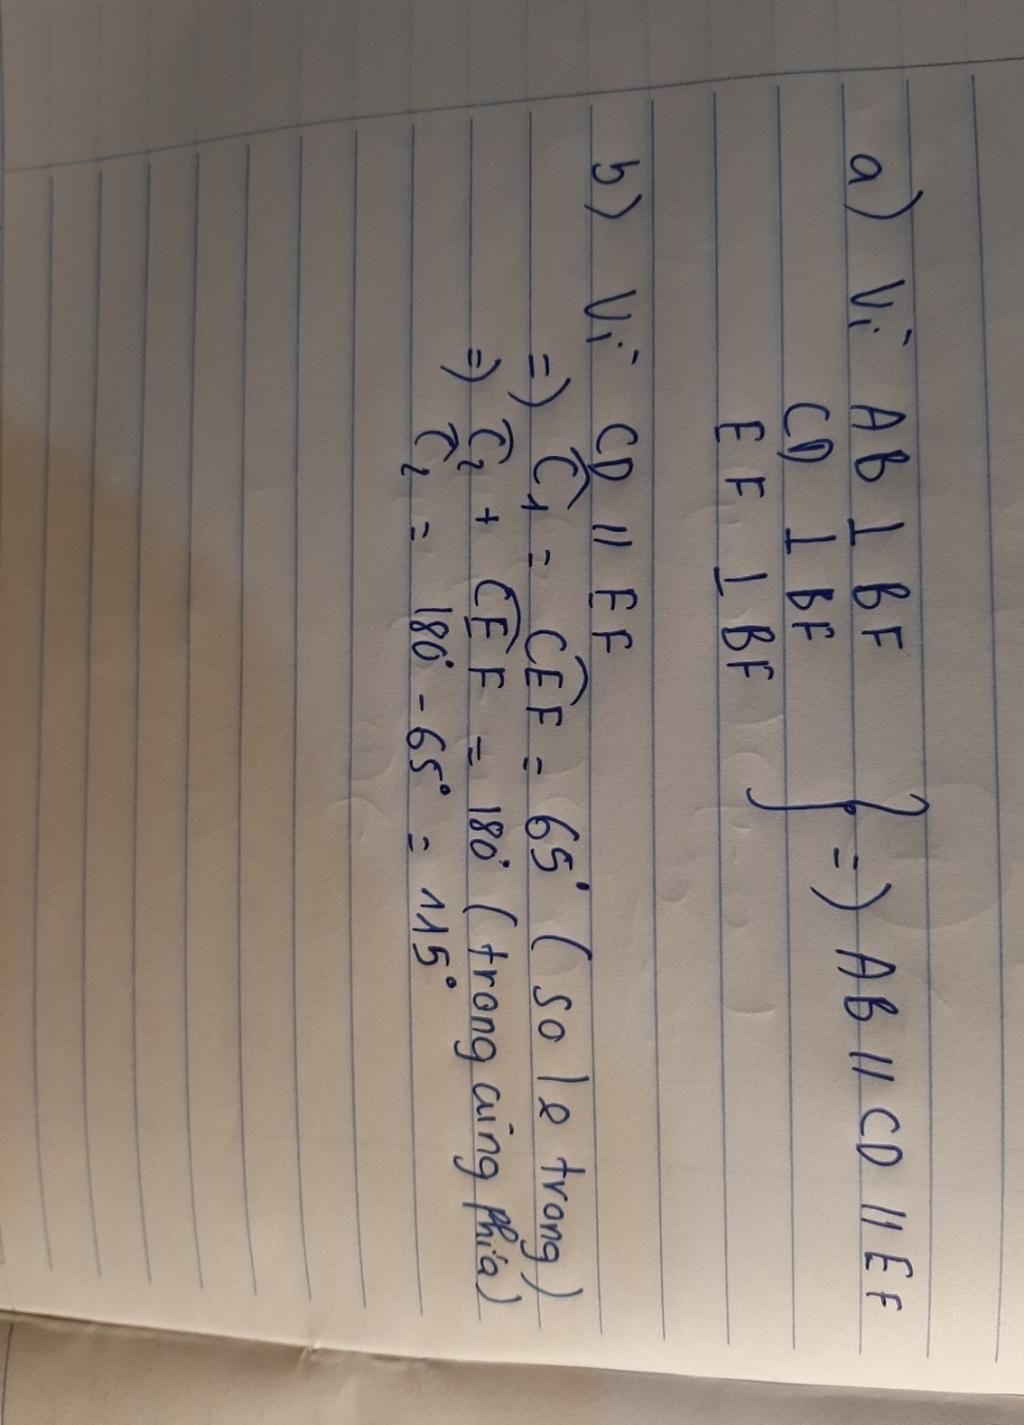 a) Vì AB ⊥ BF
CD ⊥ BF
EF ⊥ BF } => AB // CD // EF
b) Vì CD // EF
=> Ĉ₁ = CÊF = 65° (so le trong)
=> Ĉ₂ + CÊF = 180° (trong cùng phía)
Ĉ₂ = 180° - 65° = 115°